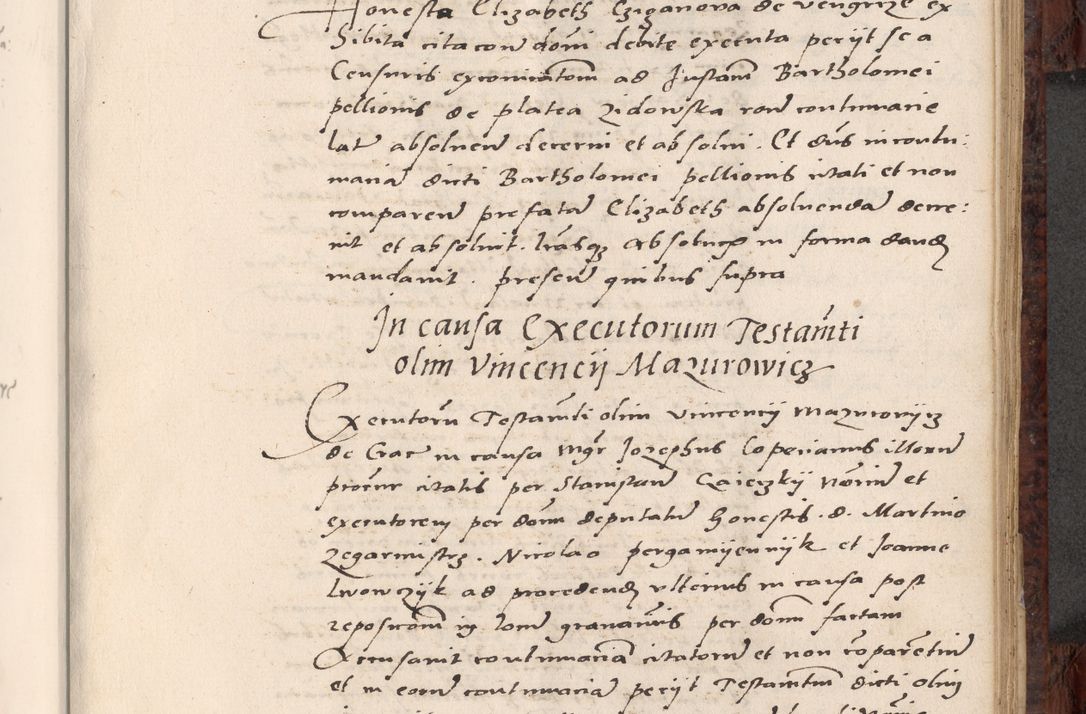 Honesta Elizabeth Czyganova de vengrze ex
hibita citacone domi debite executa periit se a
Censuris exconicatom ad Instam Bartholomei
pellionis de platea Zidowska ron contumacie
lat absolven decerni et absolvi. Et dns in contu:
macia dicti Bartholomei pellionis citati et non
comparen prefatam Elizabeth absolvendam decre:
vit et absolvit. lrasq absolucois in forma dand
mandavit. presen quibus supra
In causa Executorum Testamti
olim Vincencij Mazurowicz
Executoru Testamti olim Vincencij Mazurowicz
de Crac in causa Mgr Jozephus Loperianus illorum
procur citatis per Stanislaum nomine et
executorem per domi deputatum honestis. d. Martino
zegarmistrz. Nicolao pergamijennijk et Joanne
Lwowczyk ad procedend ulterius in causa post
reposicom in locum per domi factam
Accusavit contumaciam citatorum et non coparentium
et in eorum contumacia periit Testamentum dicti olim